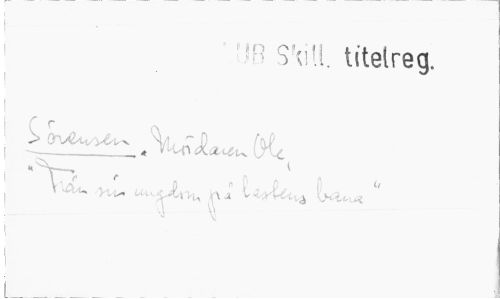 UB Skill. titelreg.
Sörensen, Mördaren Ole,
"Från sin ungdom på lastens bana"